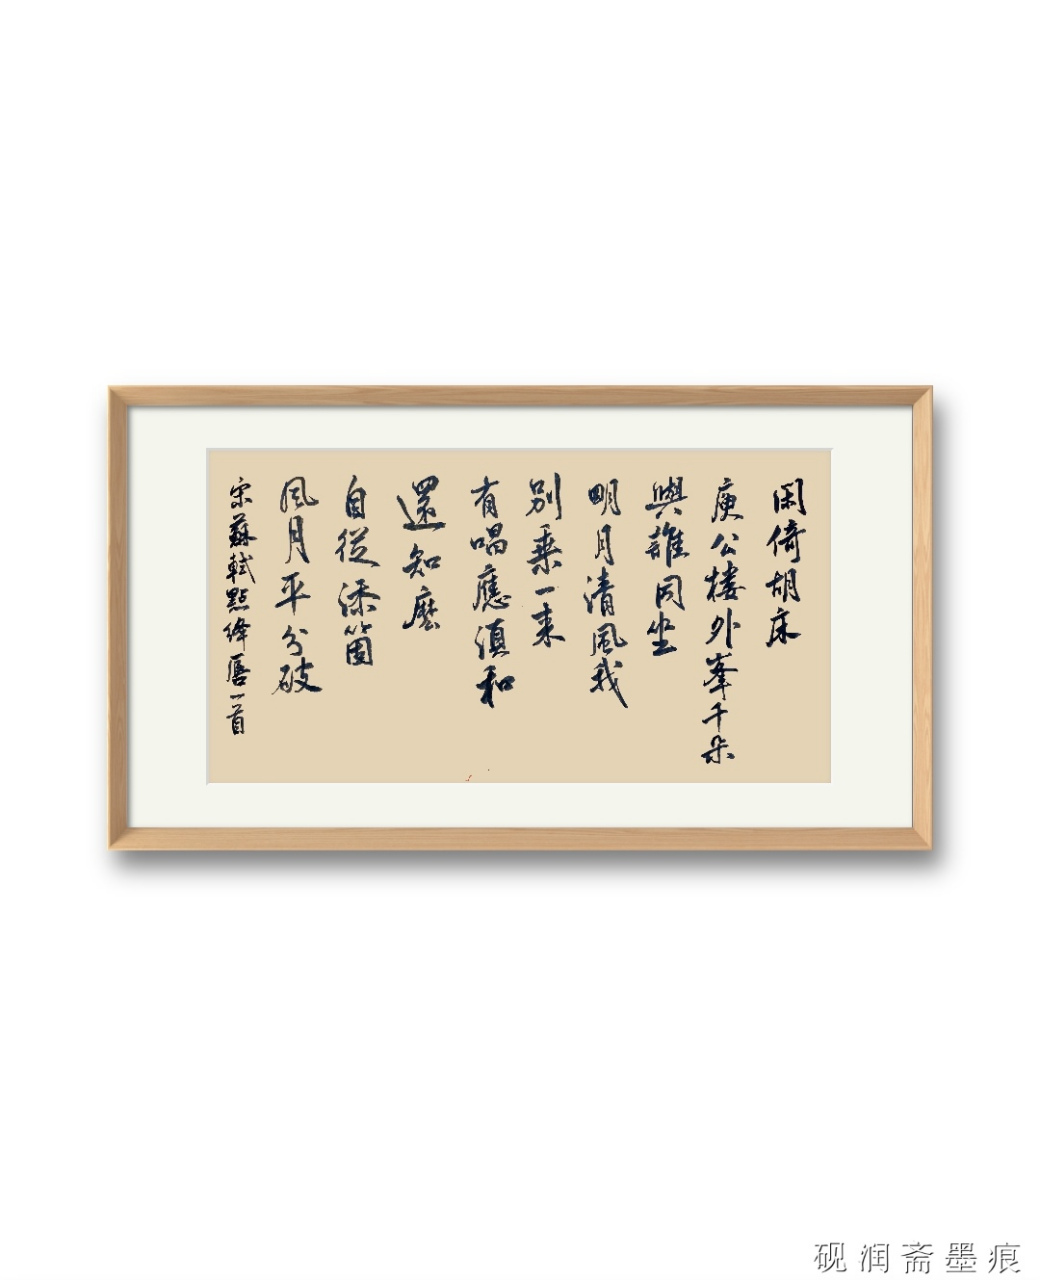 閑倚胡床
庾公樓外峯千朵
與誰同坐
明月清風我
別乘一來
有唱應須和
還知麼
自從添箇
風月平分破
宋蘇軾點絳唇一首
砚润斋墨痕